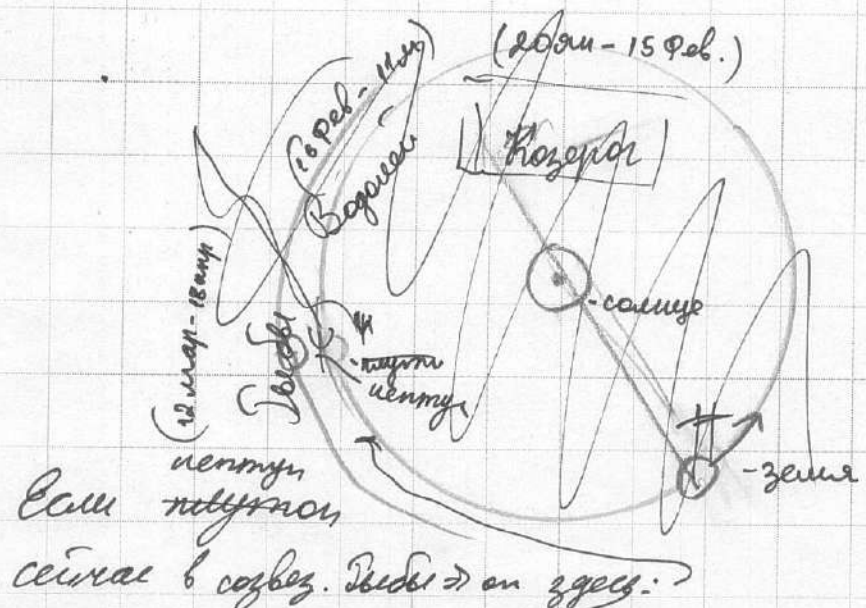 (20 ян - 15 Фев.)
(16 Фев - 11 м)
Водолей
Козерог
- солнце
(12 мар - 18 апр)
Рыбы
плутон
нептун
- земля
нептун
Если плутон
сейчас в созвез. Рыбы => он здесь: